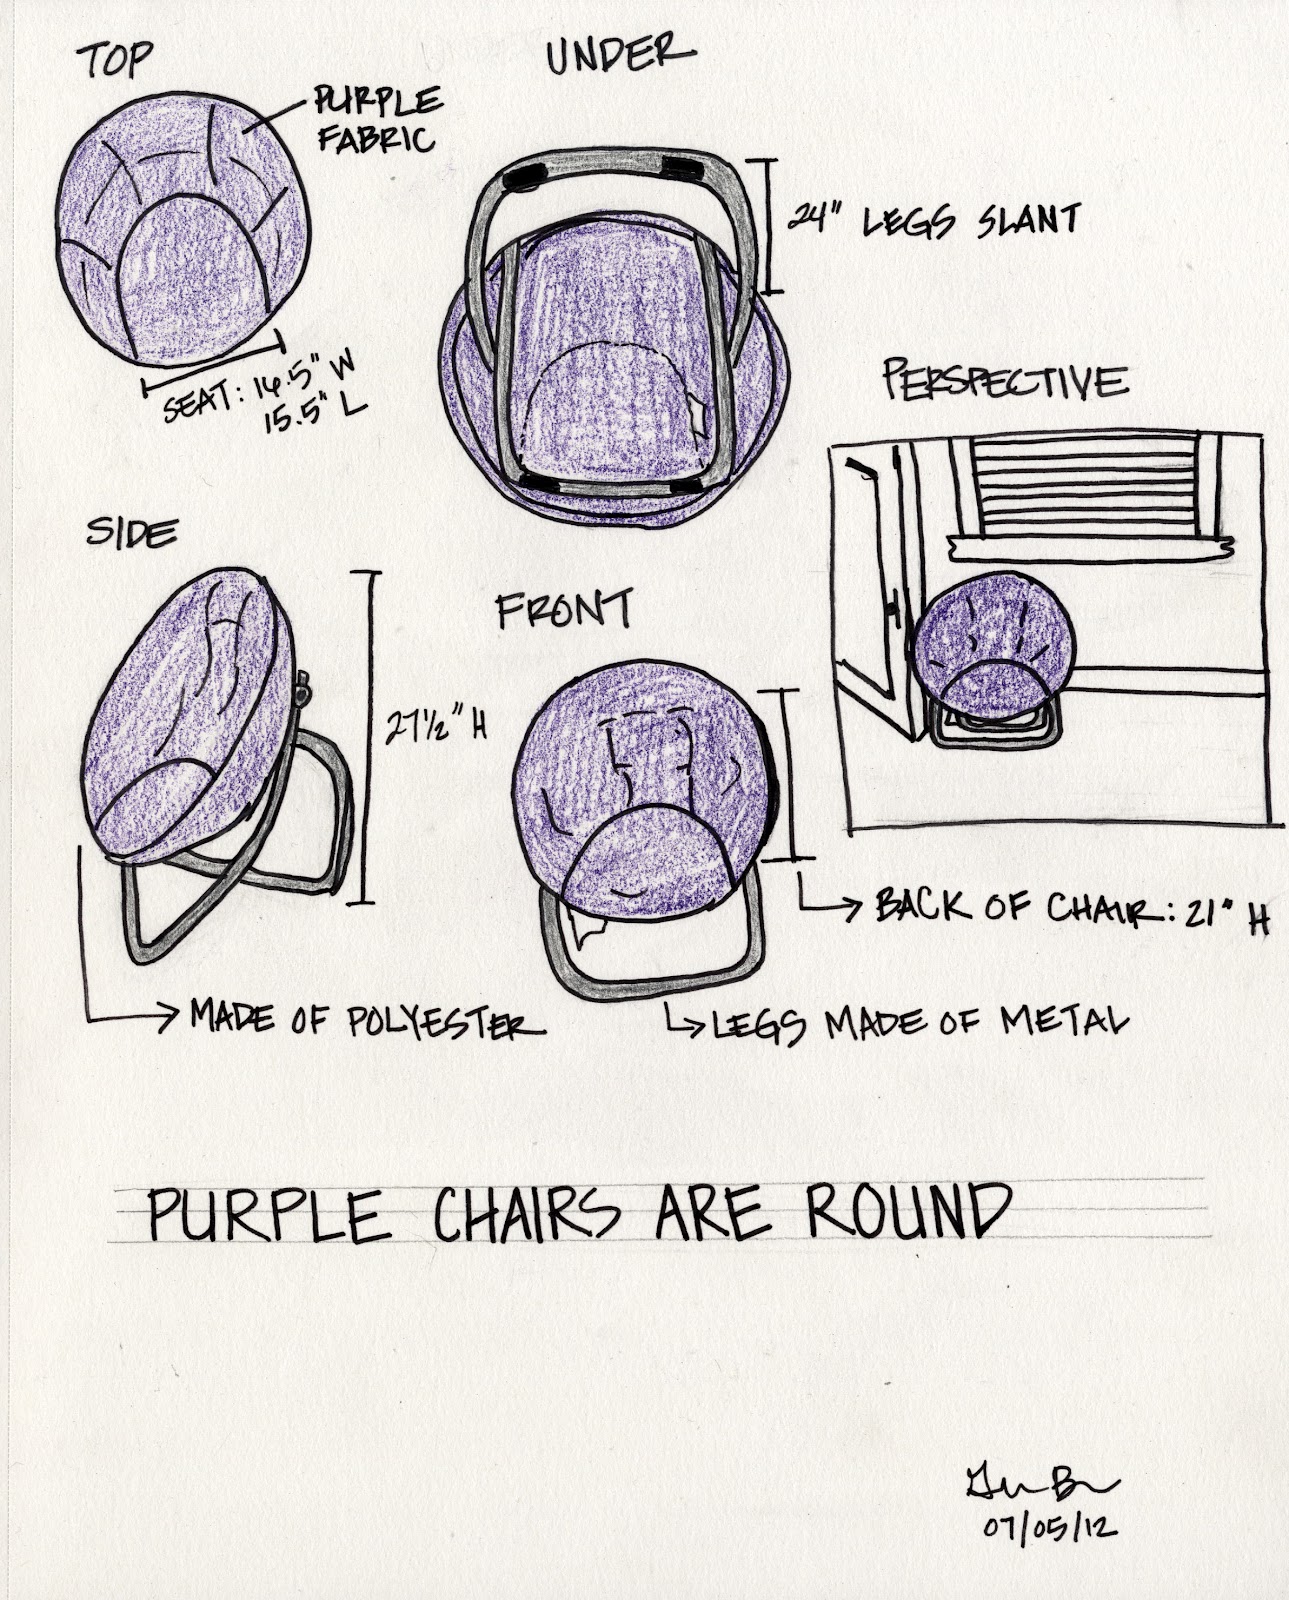 TOP
PURPLE
FABRIC
SEAT: 16.5" W
15.5" L
UNDER
24" LEGS SLANT
PERSPECTIVE
SIDE
27 1/2" H
MADE OF POLYESTER
FRONT
BACK OF CHAIR: 21" H
LEGS MADE OF METAL
PURPLE CHAIRS ARE ROUND
07/05/12